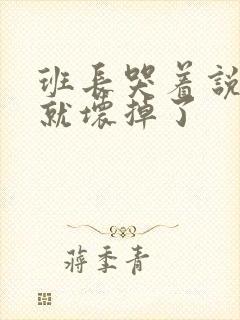 班長哭着説
就壞掉了
蔣季青